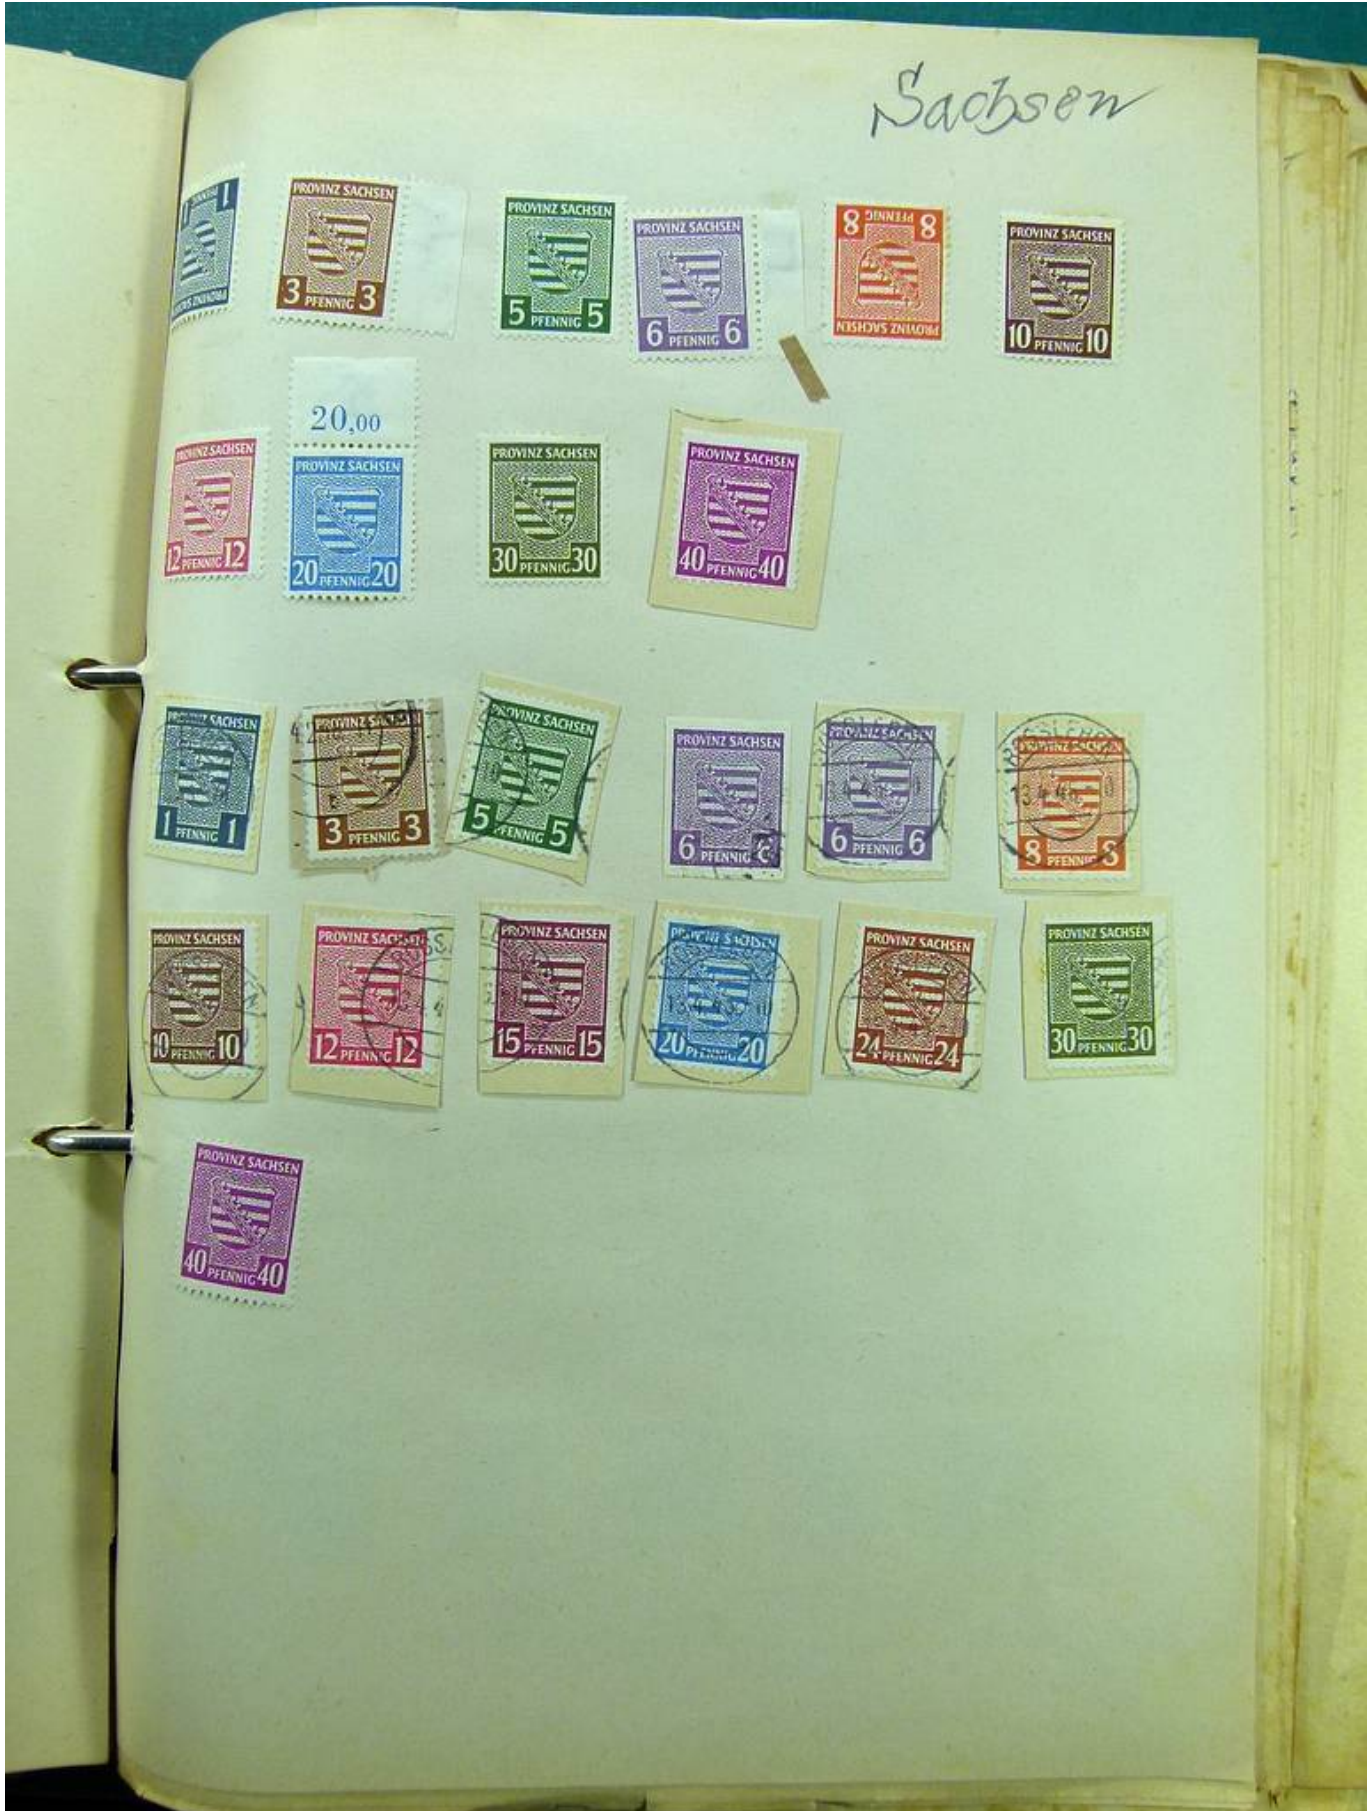 Sachsen
1 PFENNIG 1
PROVINZ SACHSEN
PROVINZ SACHSEN
3 PFENNIG 3
PROVINZ SACHSEN
5 PFENNIG 5
PROVINZ SACHSEN
6 PFENNIG 6
8 PFENNIG 8
PROVINZ SACHSEN
PROVINZ SACHSEN
10 PFENNIG 10
PROVINZ SACHSEN
12 PFENNIG 12
20,00
PROVINZ SACHSEN
20 PFENNIG 20
PROVINZ SACHSEN
30 PFENNIG 30
PROVINZ SACHSEN
40 PFENNIG 40
PROVINZ SACHSEN
1 PFENNIG 1
PROVINZ SACHSEN
3 PFENNIG 3
PROVINZ SACHSEN
5 PFENNIG 5
PROVINZ SACHSEN
6 PFENNIG 6
PROVINZ SACHSEN
6 PFENNIG 6
PROVINZ SACHSEN
13.4.46
8 PFENNIG 8
PROVINZ SACHSEN
10 PFENNIG 10
PROVINZ SACHSEN
12 PFENNIG 12
PROVINZ SACHSEN
15 PFENNIG 15
PROVINZ SACHSEN
20 PFENNIG 20
PROVINZ SACHSEN
24 PFENNIG 24
PROVINZ SACHSEN
30 PFENNIG 30
PROVINZ SACHSEN
40 PFENNIG 40